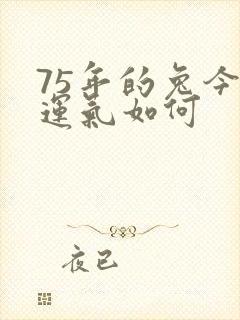 75年的兔今
運氣如何
夜已